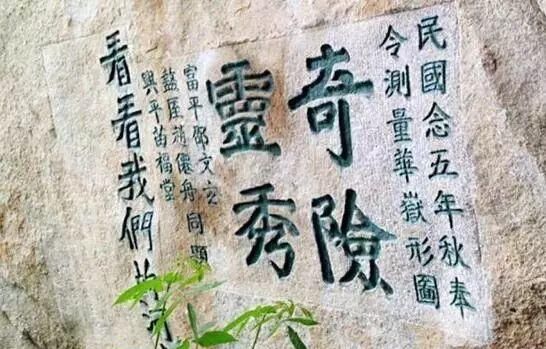 民國念五年秋奉
令測量華嶽形圖
奇險
靈秀
富平鄧文
盩厔趙儇舟 同題
興平苗福堂
看看我們的河